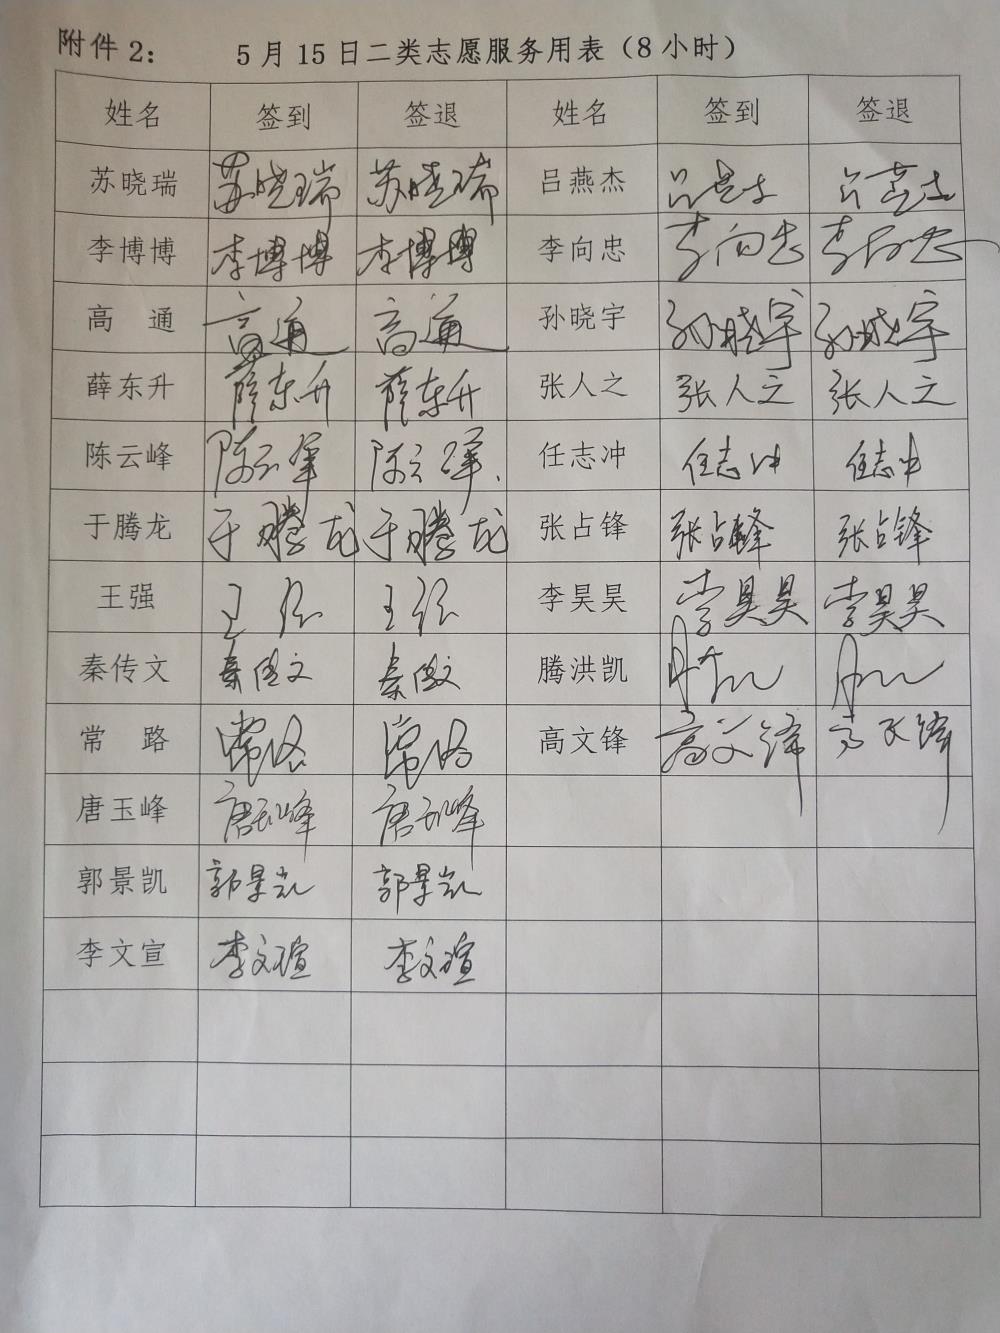 附件2：
5月15日二类志愿服务用表（8小时）
姓名 签到 签退 姓名 签到 签退
苏晓瑞 苏晓瑞 苏晓瑞 吕燕杰
李博博 李博博 李博博 李向忠 李向忠 李向忠
高 通 高通 高通 孙晓宇 孙晓宇 孙晓宇
薛东升 薛东升 薛东升 张人之 张人之 张人之
陈云峰 陈云峰 陈云峰 任志冲 任志冲 任志冲
于腾龙 于腾龙 于腾龙 张占锋 张占锋 张占锋
王强 王强 王强 李昊昊 李昊昊 李昊昊
秦传文 秦传文 秦传文 腾洪凯
常 路 常路 常路 高文锋 高文锋 高文锋
唐玉峰 唐玉峰 唐玉峰
郭景凯 郭景凯 郭景凯
李文宣 李文瑄 李文瑄